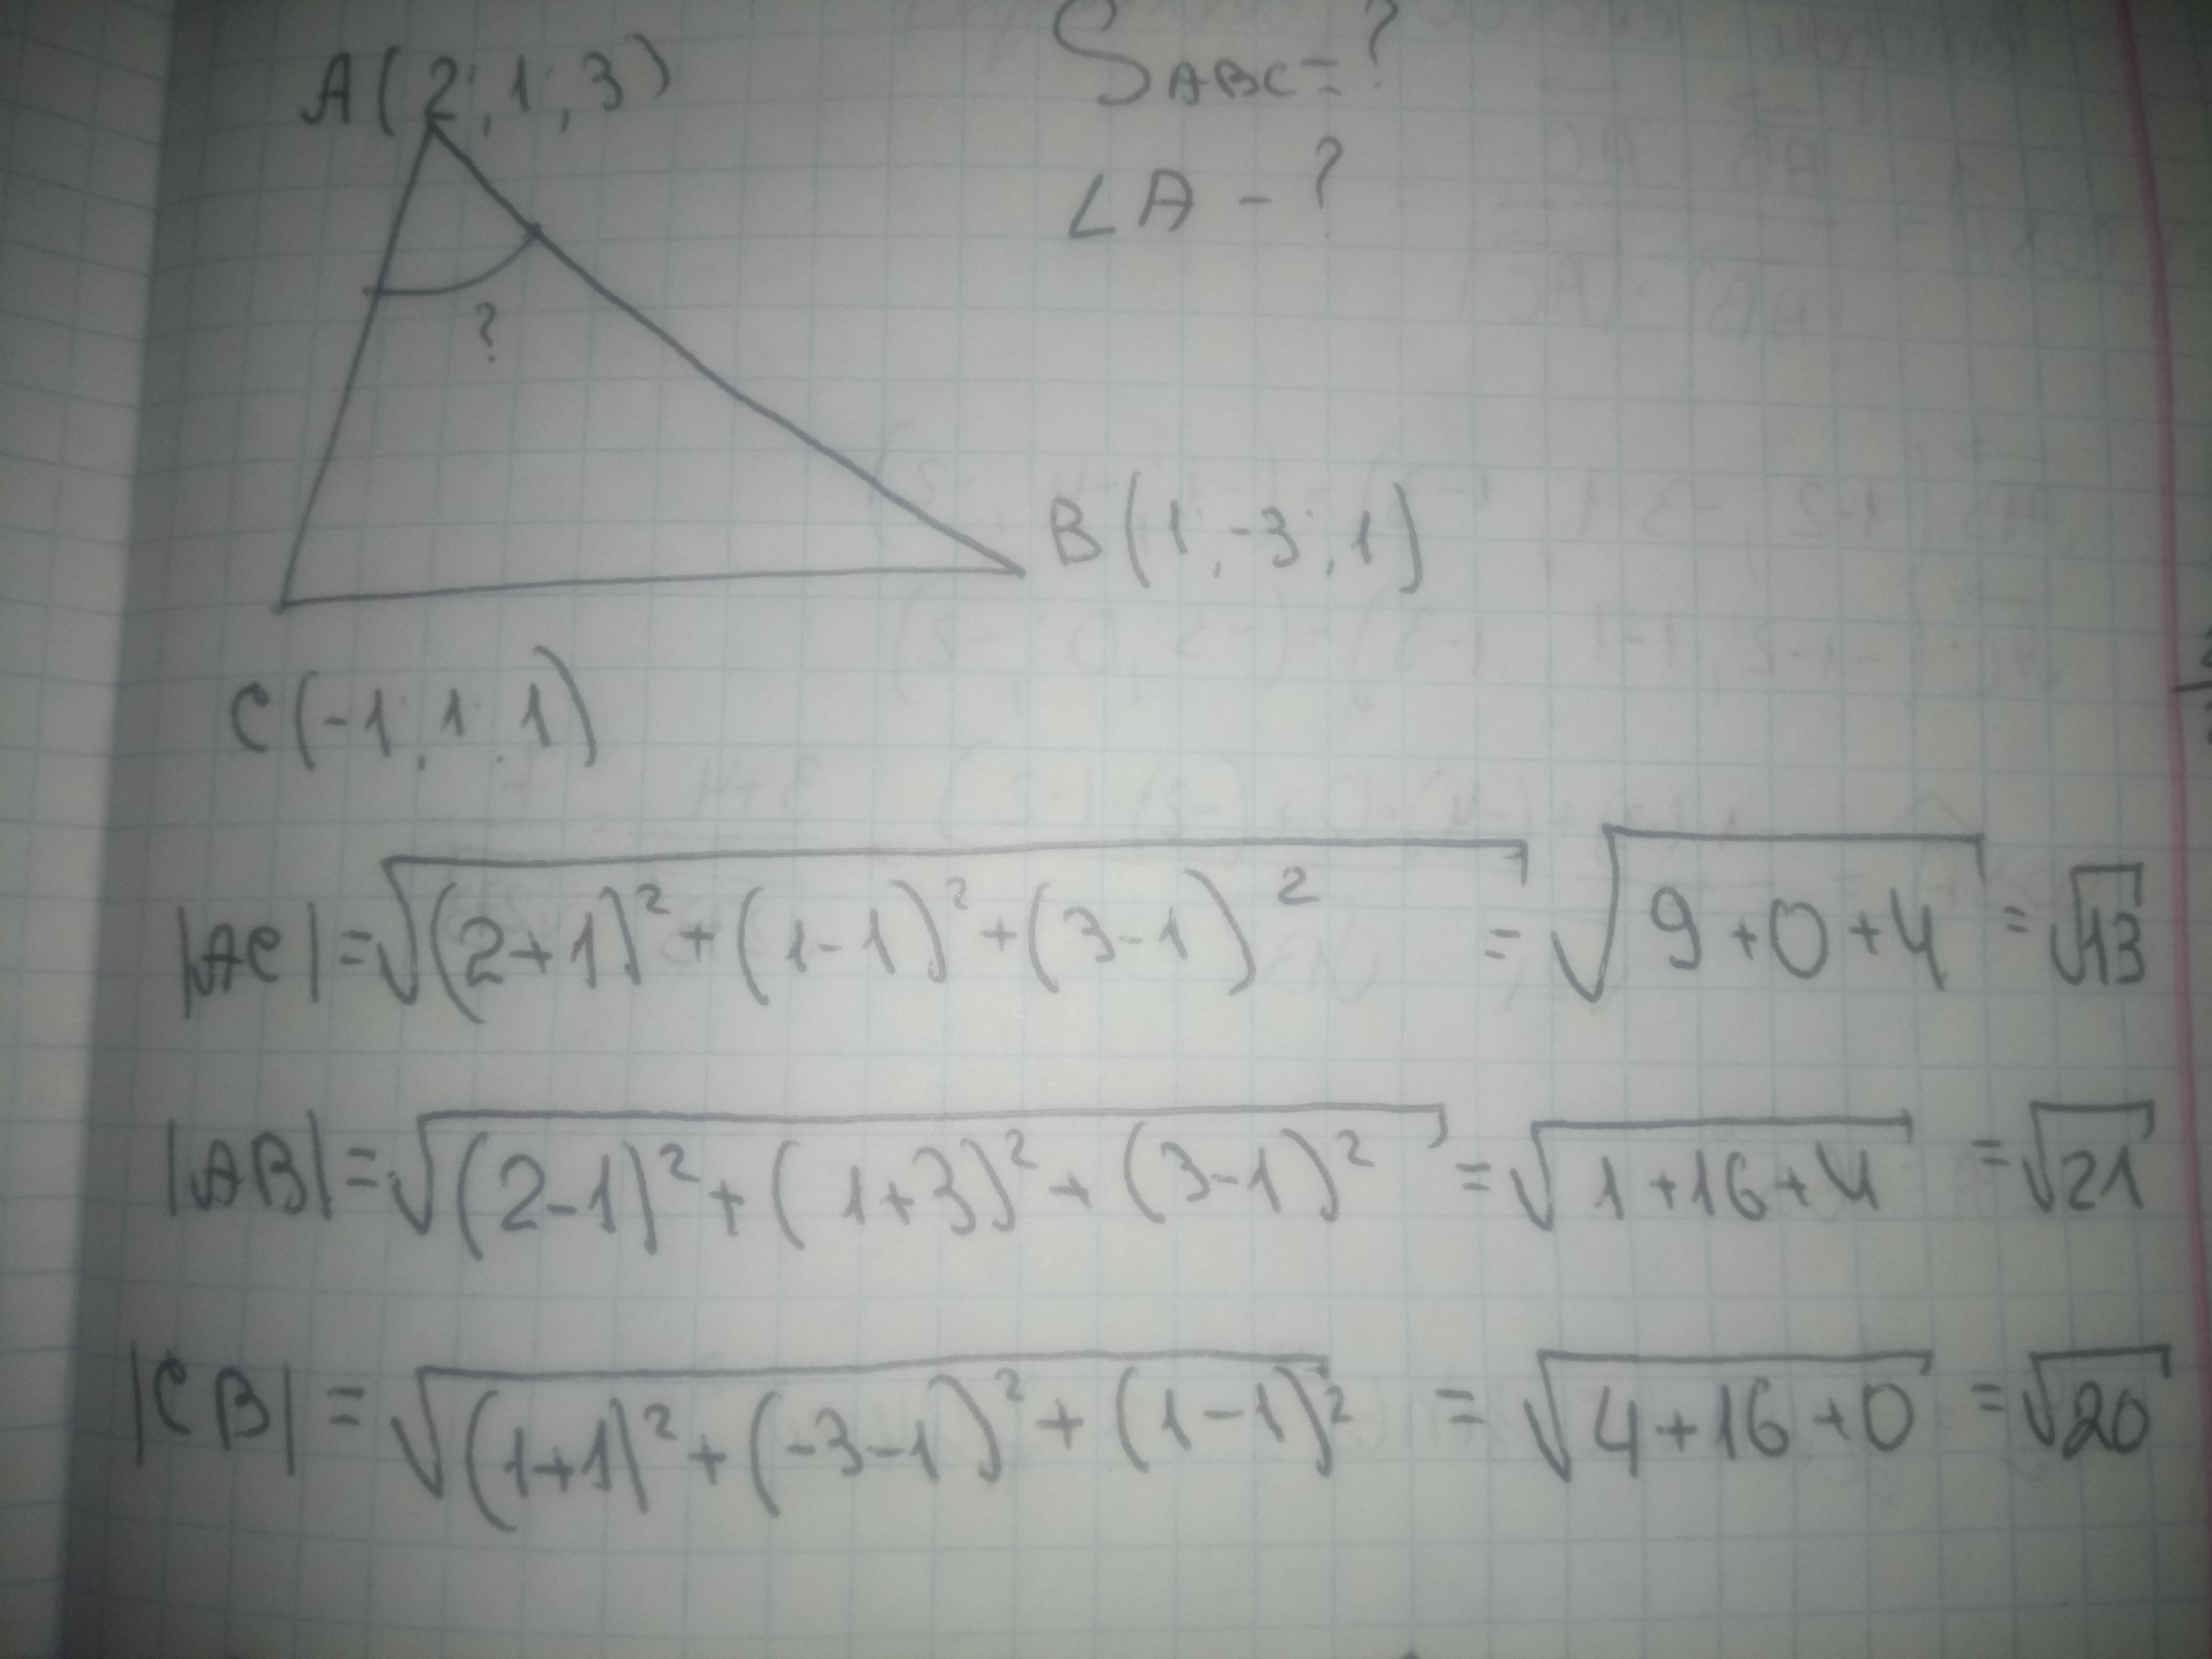 A(2;1;3)
S ABC = ?
∠A - ?
?
B(1;-3;1)
C(-1;1;1)
|AC| = √((2+1)² + (1-1)² + (3-1)²) = √(9+0+4) = √13
|AB| = √((2-1)² + (1+3)² + (3-1)²) = √(1+16+4) = √21
|CB| = √((1+1)² + (-3-1)² + (1-1)²) = √(4+16+0) = √20